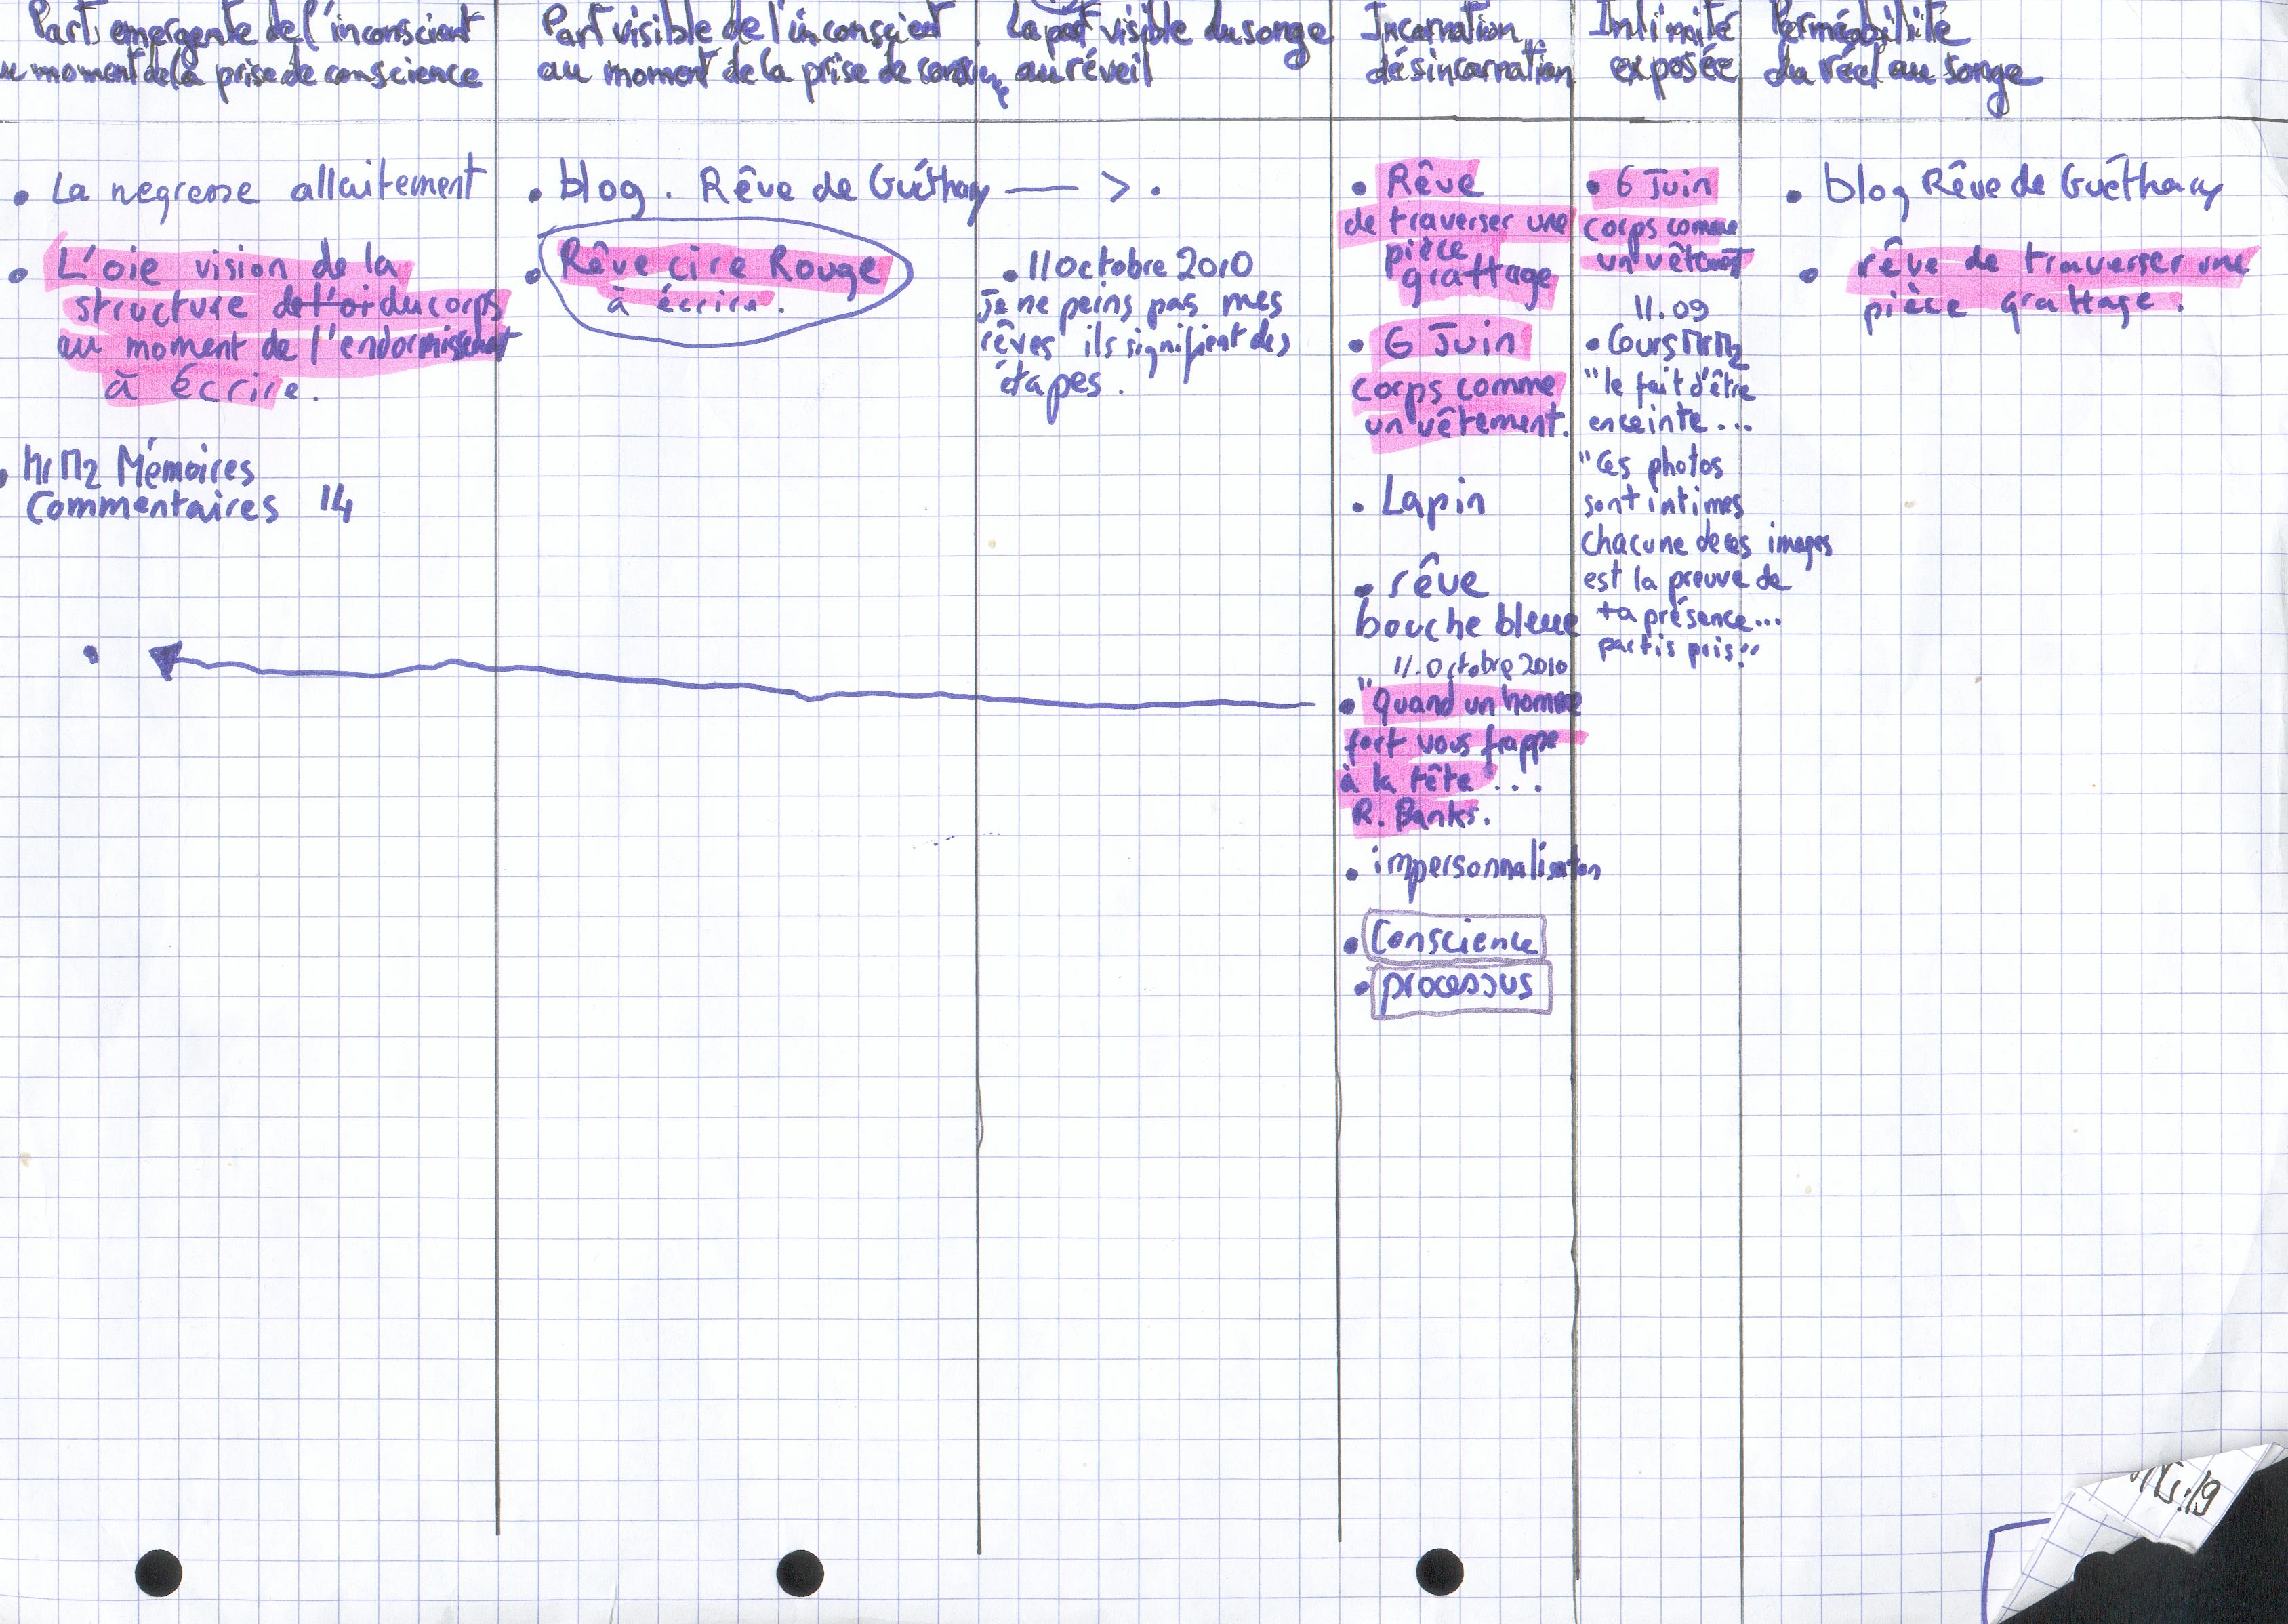 Part emergente de l'inconscient
au moment de la prise de conscience
Part visible de l'inconscient
au moment de la prise de conscience
La part visible du songe
au réveil
Incarnation
désincarnation
Intimité
exposée
Perméabilité
du réel au songe
• La negresse allaitement
• L'oie vision de la
structure de l'oi du corps
au moment de l'endormissement
à écrire.
Mémoires
Commentaires 14
• blog. Rêve de Guéthary —>.
• Rêve cire Rouge
à écrire.
• 11 octobre 2010
Je ne peins pas mes
rêves ils signifient des
étapes.
• Rêve
de traverser une
pièce
grattage
• 6 Juin
corps comme
un vêtement.
• Lapin
• rêve
bouche bleue
11. Octobre 2010
• "Quand un homme
fort vous frappe
à la tête"...
R. Banks.
• impersonnalisation
• Conscience
• processus
• 6 Juin
corps comme
un vêtement
11.09
• Cours
"le fait d'être
enceinte...
"Ces photos
sont intimes
chacune de ces images
est la preuve de
ta présence...
partis pris"
• blog Rêve de Guéthary
• rêve de traverser une
pièce grattage.